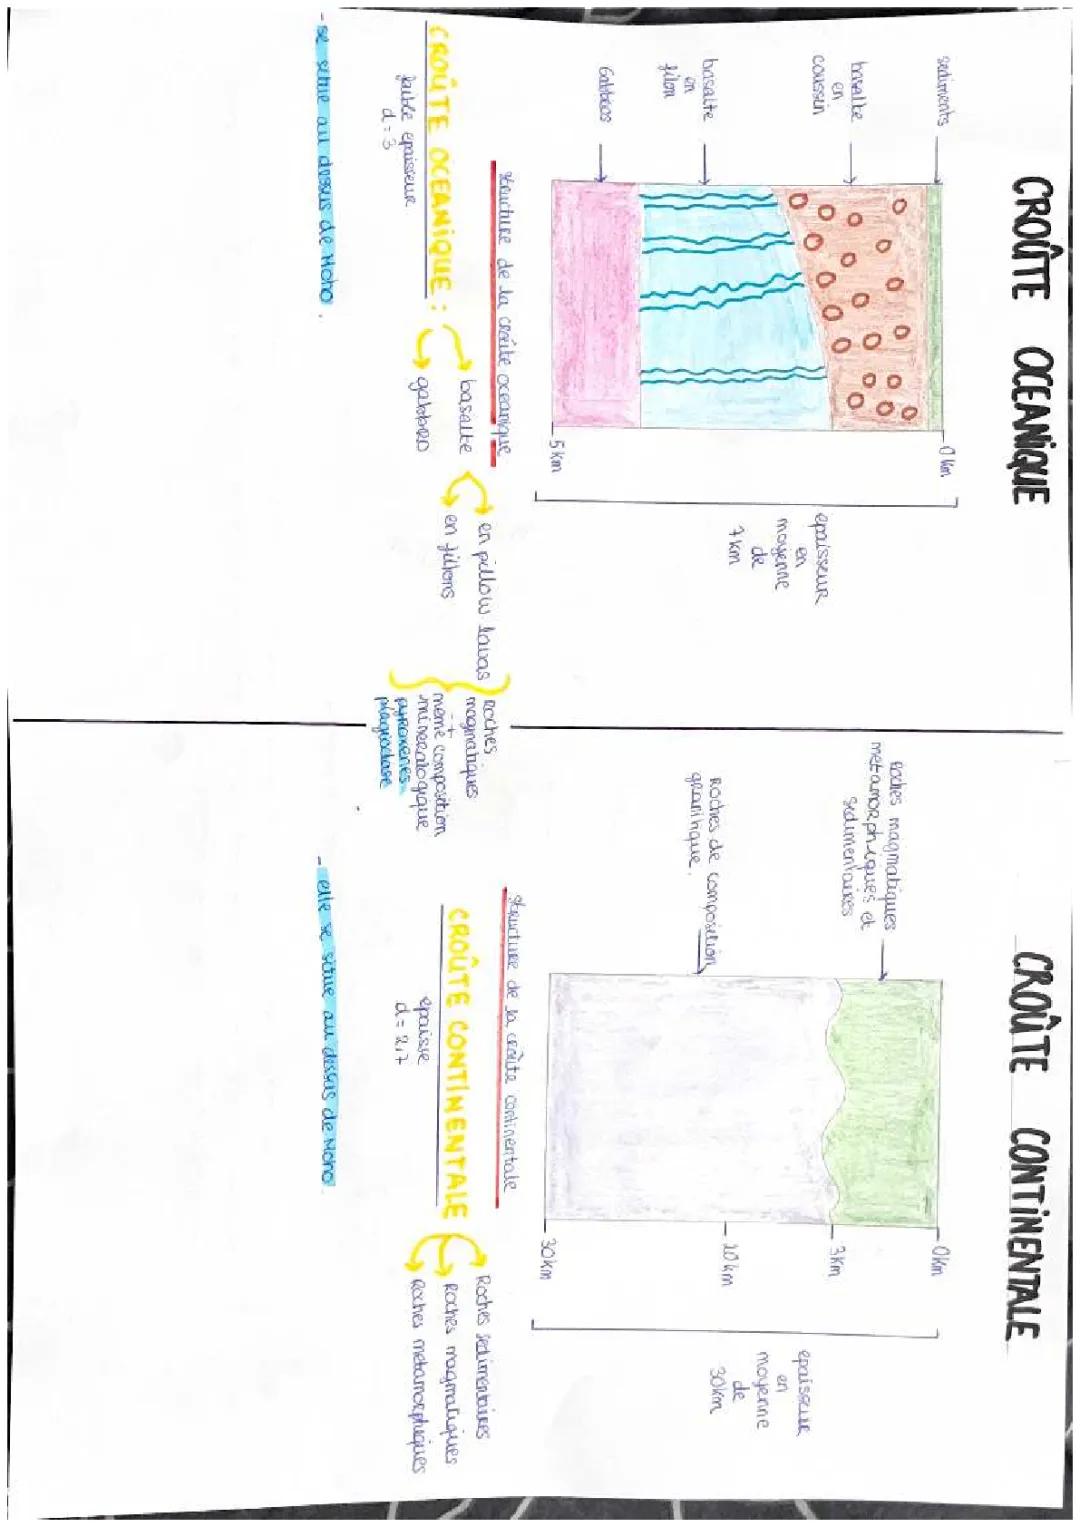 CROÛTE OCEANIQUE
sediments
basalte
en
coussin
basalte
en
filon
Gabbros
0 km
5 km
epaisseur
en
moyenne
de
7 km
structure de la croûte oceanique
CROÛTE OCEANIQUE :
faible epaisseur
d = 3
basalte
gabbro
en pillow lavas
en filons
Roches
magmatiques
+
meme composition
mineralogique
pyroxenes
plagioclase
- se situe au dessus de Moho.
CROÛTE CONTINENTALE
Roches magmatiques
metamorphiques et
sedimentaires
Roches de composition
granitique.
0km
3km
10 km
30km
epaisseur
en
moyenne
de
30km
structure de la croûte continentale
CROÛTE CONTINENTALE
epaisse
d = 2,7
Roches sedimentaires
Roches magmatiques
Roches metamorphiques
- elle se situe au dessus de Moho